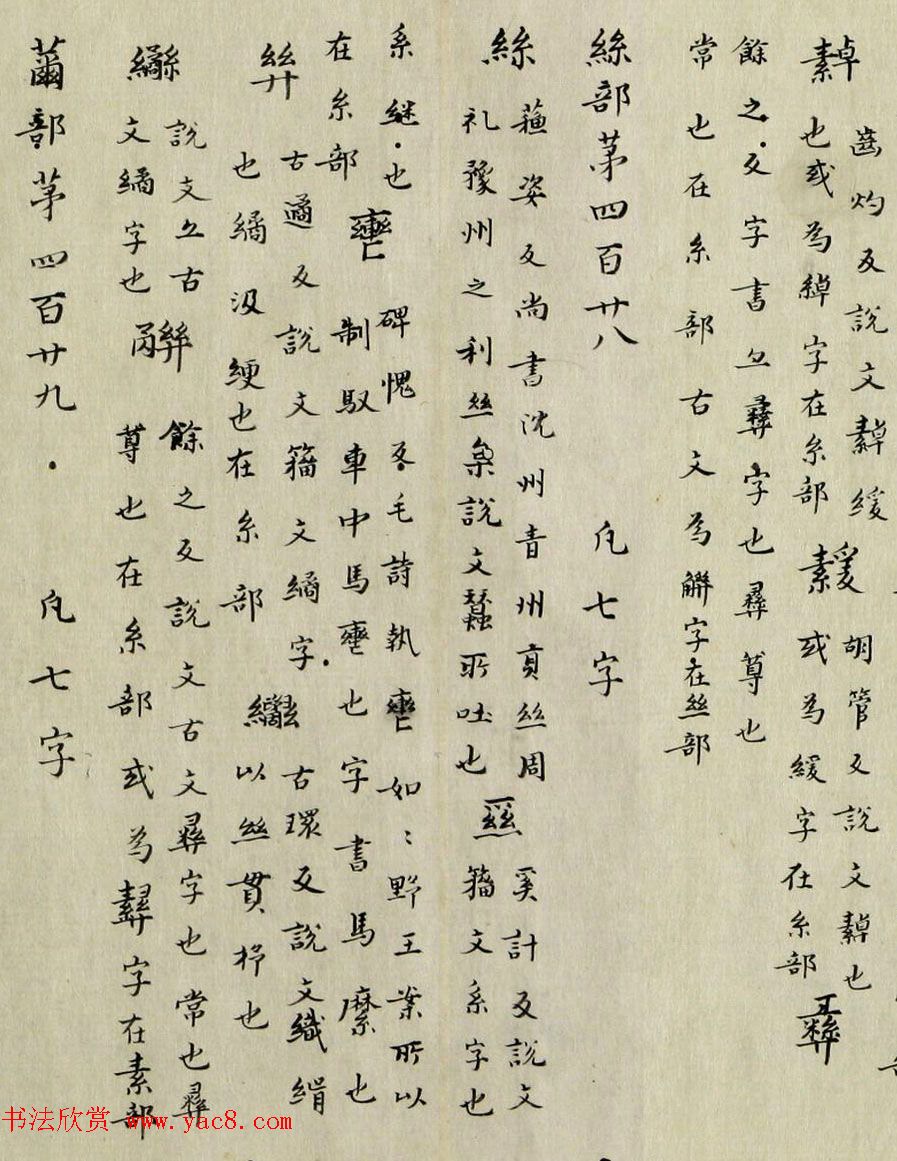 𦃃 齒灼反說文𦃃緩
也或為綽字在糸部 䌱 胡管反說文𦃃也
或為緩字在糸部 彛
餘之反字書亦彛字也彛尊也
常也在糸部古文為𢑱字在絲部
絲部第四百廿八 凢七字
絲 蘓姿反尚書沇州青州貢絲周
礼豫州之利絲枲說文蠶所吐也 𢇁 奚計反說文
籀文系字也
系継也 轡 碑愧反毛詩執轡如〻野王案所以
在糸部 制馭車中馬轡也字書馬縻也
古遹反說文籀文繘字
也繘汲綆也在糸部 古環反說文織絹
以絲貫杼也
說文亦古
文繘字也 餘之反說文古文彛字也常也彛
尊也在糸部或為字在素部
繭部第四百廿九 凢七字
书法欣赏 www.yac8.com